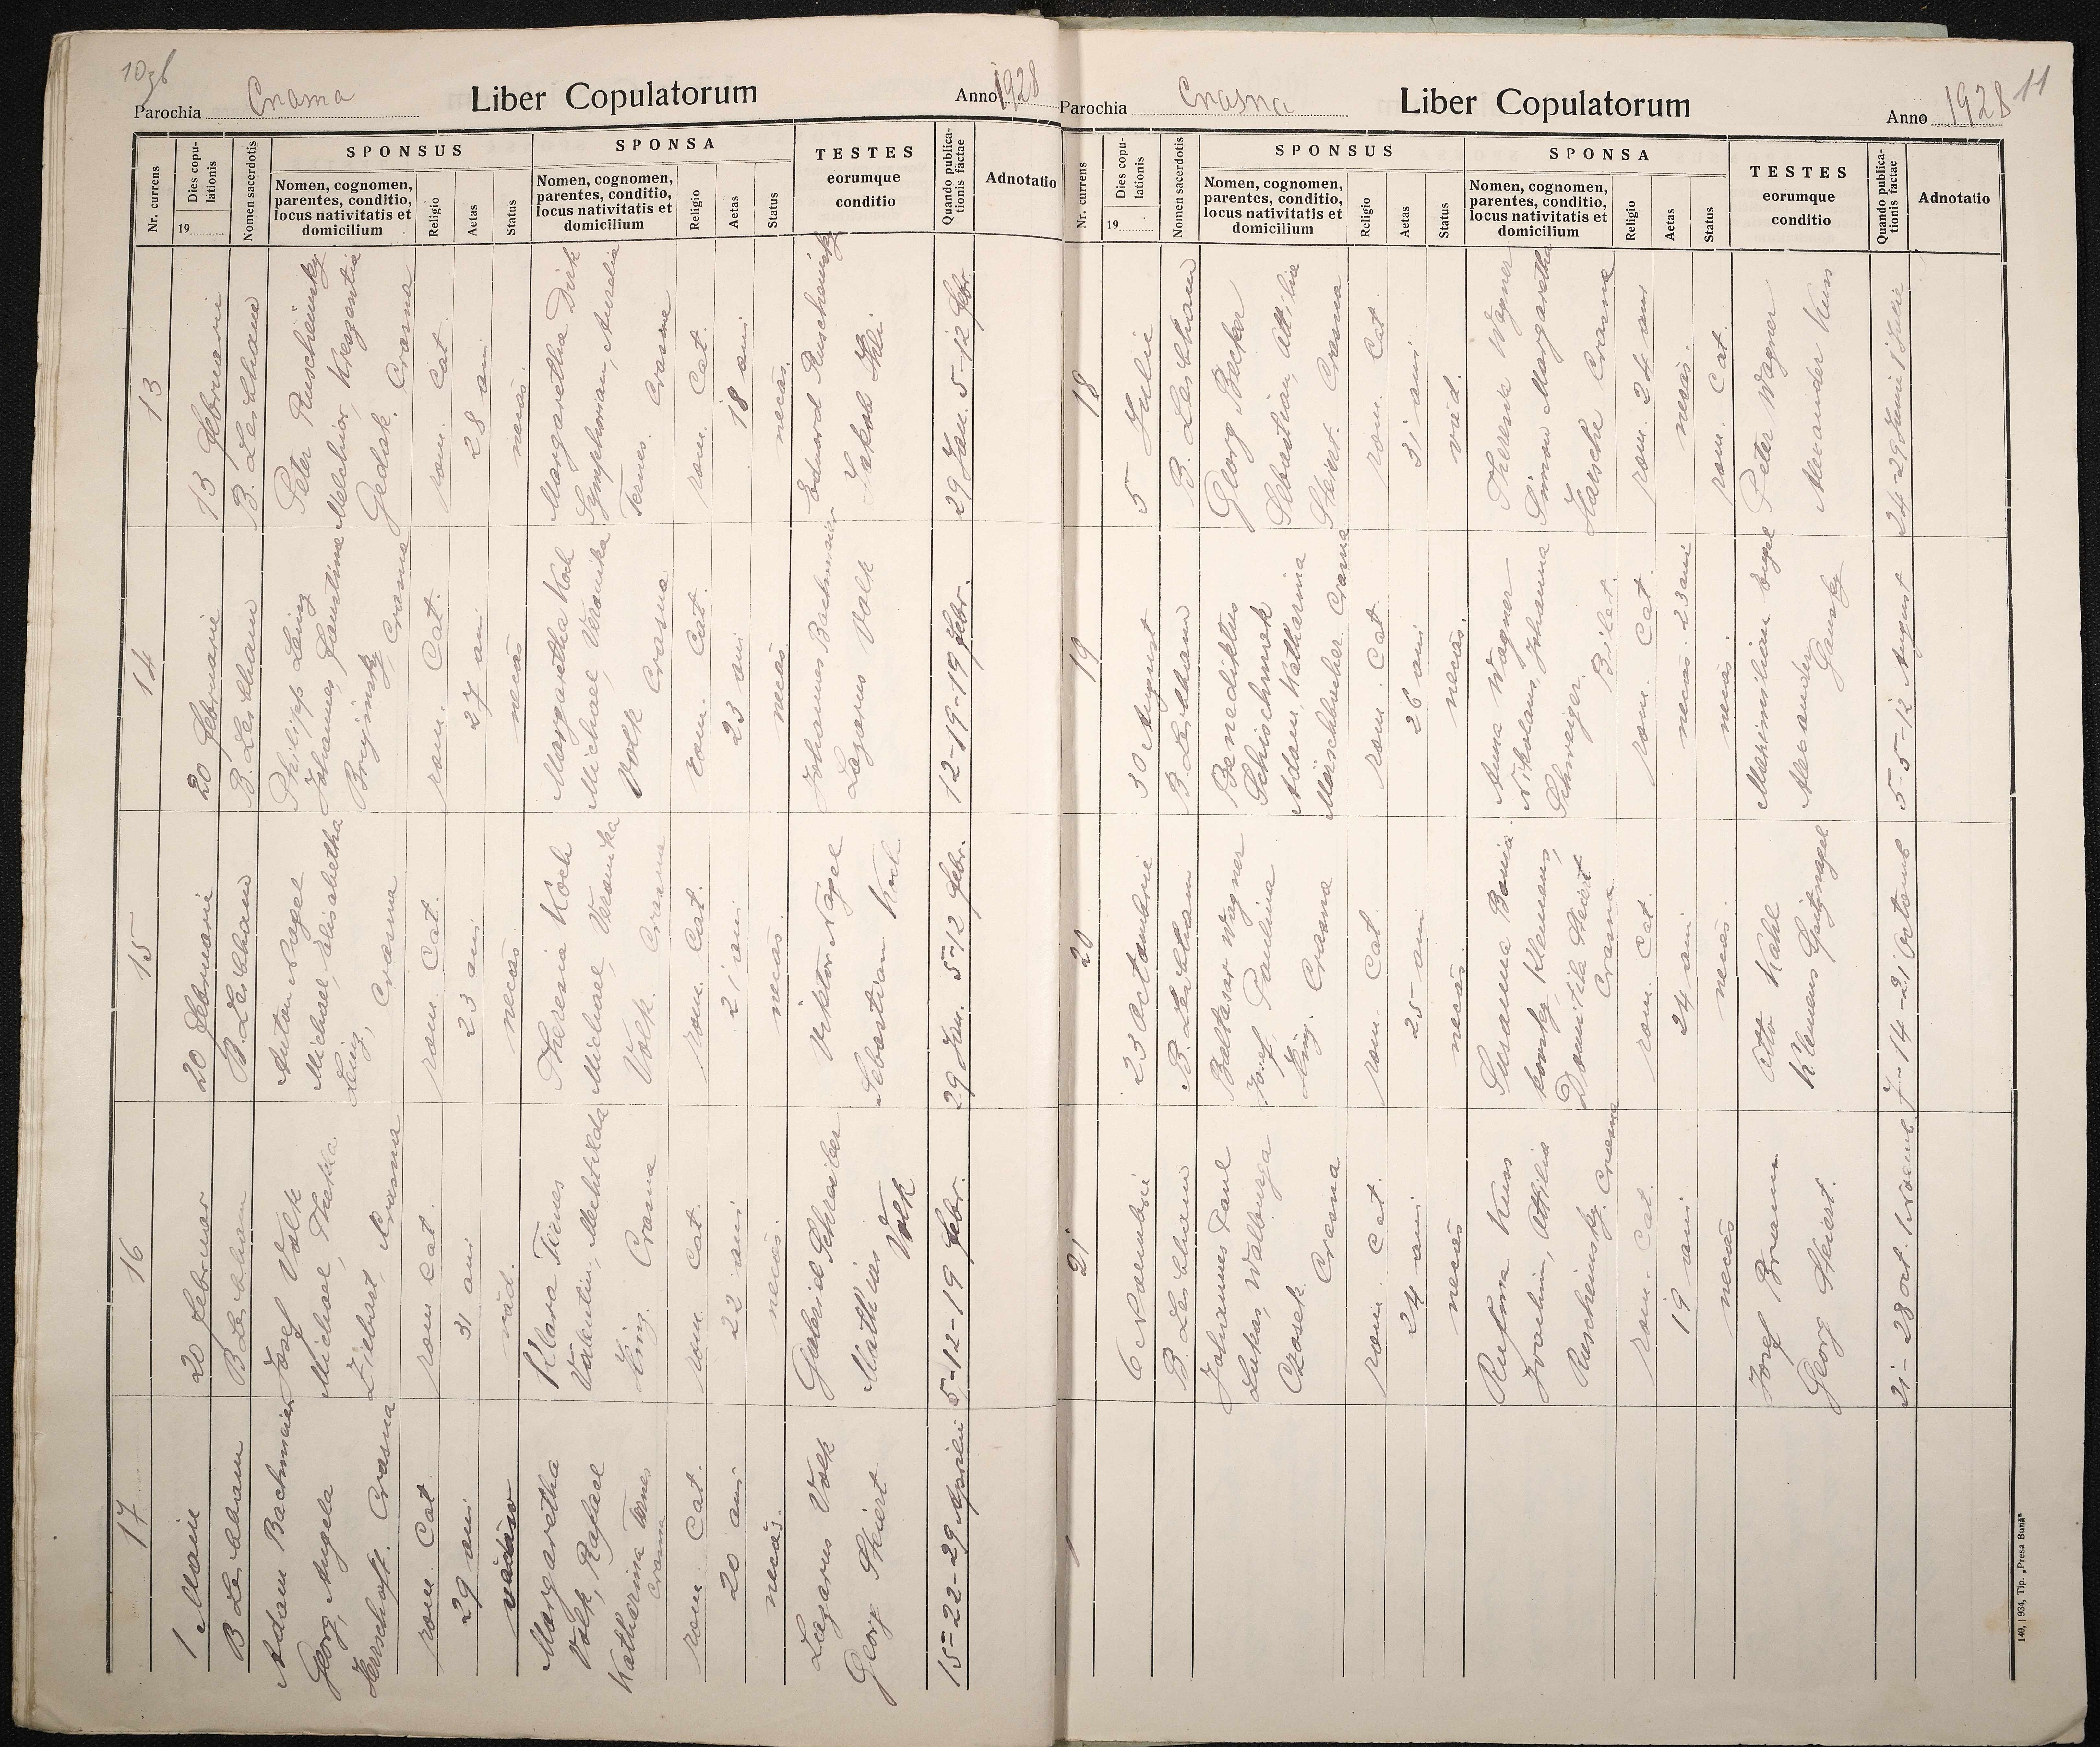 Parochia Crasna Liber Copulatorum Anno 1928
Nr. currens
Dies copu-
lationis
19
Nomen sacerdotis
SPONSUS
Nomen, cognomen,
parentes, conditio,
locus nativitatis et
domicilium
Religio
Aetas
Status
SPONSA
Nomen, cognomen,
parentes, conditio,
locus nativitatis et
domicilium
Religio
Aetas
Status
TESTES
eorumque
conditio
Quando publica-
tionis factae
Adnotatio
13
13 Februarie
B. Leibham
Peter Ruscheinsky
Melchior, Kreszentia
Gedak. Crasna
rom. Cat.
28 ani
necăs.
Margaretha Dirk
Symphorian, Aurelia
Ternes. Crasna
rom. Cat.
18 ani
necăs.
Eduard Ruscheinsky
Jakob
29 Jan. 5-12 Febr.
14
20 Februarie
B. Leibham
Philipp Leinz
Johannes, Faustina
Bryjinsky, Crasna
rom. Cat.
27 ani
necăs
Margaretha Koch
Michael, Veronika
Volk Crasna
rom. Cat.
23 ani
necăs.
Johannes Bachmaier
Lazarus Volk
12-19-19 Febr.
15
20 Februarie
B. Leibham
Anton Nagel
Michael, Elisabetha
Leinz, Crasna
rom. Cat.
23 ani
necăs.
Theresia Koch
Michael, Veronika
Volk. Crasna
rom. Cat.
21 ani
necăs.
Viktor Nagel
Sebastian Koch
29 Jan. 5-12 Febr.
16
20 Februar
B Leibham
Josef Volk
Michael, Thekla
Ziebart, Crasna
rom Cat.
31 ani
văd.
Klara Ternes
Valentin, Mechtilda
King. Crasna
rom. Cat.
22 ani
necăs.
Gabriel Schreiber
Mathias Volk
5-12-19 Febr.
17
1 Maiu
B Leibham
Adam Bachmaier
Georg, Angela
Herrschaft. Crasna
rom. Cat.
29 ani
văduv
Margaretha
Volk, Rafael
Katharina Ternes
Crasna
rom. Cat.
20 ani
necăs.
Lazarus Volk
Georg Steiert
15-22-29 Aprilie
Parochia Crasna Liber Copulatorum Anno 1928 11
Nr. currens
Dies copu-
lationis
19
Nomen sacerdotis
SPONSUS
Nomen, cognomen,
parentes, conditio,
locus nativitatis et
domicilium
Religio
Aetas
Status
SPONSA
Nomen, cognomen,
parentes, conditio,
locus nativitatis et
domicilium
Religio
Aetas
Status
TESTES
eorumque
conditio
Quando publica-
tionis factae
Adnotatio
18
5 Julie
B. Leibham
Georg Becker
Sebastian, Ottilia
Steiert. Crasna
rom. Cat.
31 ani
văd.
Theresia Wagner
Simon Margaretha
Crasna
rom. 24 ani
necăs.
rom. Cat.
Peter Wagner
Alexander Kuss
24-29 Junie 1 Julie
19
30 August
B. Leibham
Benediktus
Schischmek
Adam, Katharina
Märschbecher. Crasna
rom. Cat.
26 ani
necăs.
Anna Wagner
Nikolaus, Johanna
Schweiger.
rom. Cat.
necăs. 23 ani
necăs.
Maximilian Engel
Alexander
Gansky
5-5-12 August
20
23 Octombrie
B. Leibham
Baltasar Wagner
Josef, Paulina
King. Crasna
rom. Cat.
25 ani
necăs.
Susanna Bonia-
kowsky, Klemens,
Domitila Steiert
Crasna
rom. Cat.
24 ani
necăs.
Otto Kahl
Klemens Gaitznagel
7-14-21 Octomb
21
6 Noembrie
B. Leibham
Johannes Paul
Lukas, Walburga
Czosek. Crasna
rom. Cat.
24 ani
necăs
Rufina Kuss
Joachim, Ottilia
Ruscheinsky. Crasna
rom. Cat.
19 ani
necăs
Josef Braun
Georg Steiert.
21-28 Oct. 1 Noemb.
140, | 934, Tip. „Presa Bună"